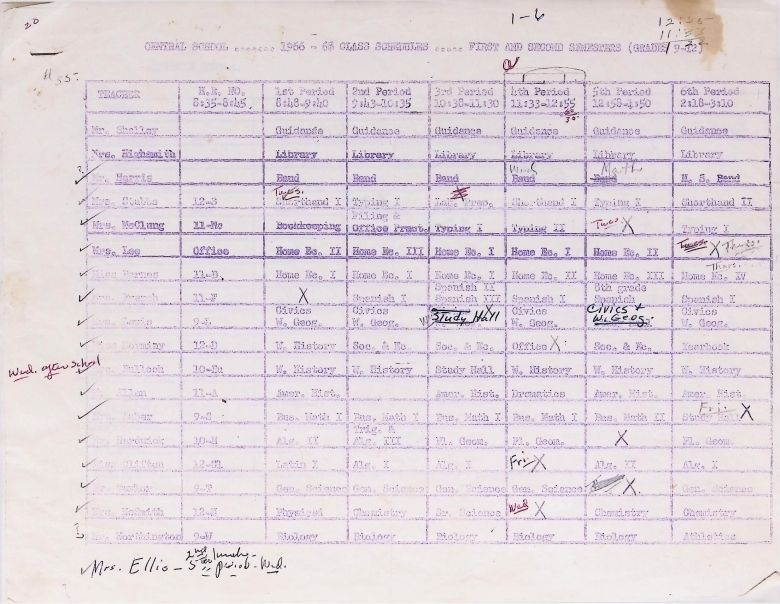 20
1-6
12:55
11:33
CENTRAL SCHOOL ....... 1966 - 68 CLASS SCHEDULES ..... FIRST AND SECOND SEMESTERS (GRADES 9-12)
TEACHER H.R. NO. 8:35-8:45 1st Period 8:48-9:40 2nd Period 9:43-10:35 3rd Period 10:38-11:30 4th Period 11:33-12:55 5th Period 12:58-1:50 6th Period 2:18-3:10
Mr. Shelley Guidance Guidance Guidance Guidance Guidance Guidance
Mrs. Highsmith Library Library Library Library Library Library
Mr. Harris Band Band Band Wed Band Band Math H. S. Band
Mrs. Stubbs 12-S Tues. Shorthand I Typing I Shorthand I Typing I Shorthand II
Mrs. McClung 11-Mc Bookkeeping Filing & Office Pract. Typing I Typing II Tues X Typing I
Mrs. Lee Office Home Ec. II Home Ec. III Home Ec. I Home Ec. I Home Ec. II Tues. X Thurs.
Miss Barnes 11-B Home Ec. I Home Ec. I Home Ec. I Home Ec. II Home Ec. III Thurs. Home Ec. IV
Mrs. French 11-F X Spanish I Spanish II Spanish III Spanish I 8th grade Spanish Spanish I
Lewis 9-L Civics W. Geog. Civics W. Geog. Study Hall Civics W. Geog. Civics + W. Geog. Civics W. Geog.
Dorminy 12-D W. History Soc. & Ec. Soc. & Ec. Office X Soc. & Ec. Yearbook
Wed. after school
Bullock 10-Bu W. History W. History Study Hall W. History W. History W. History
Allen 11-A Amer. Hist. Amer. Hist. Dramatics Amer. Hist. Amer. Hist
9-S Bus. Math I Bus. Math I Bus. Math I Bus. Math I Bus. Math II Fri. Study Hall X
Hardwick 10-H Alg. II Trig. & Alg. III Pl. Geom. Pl. Geom. X Pl. Geom.
Miss Clifton 12-Cl Latin I Alg. I Alg. I Fri X Alg. II Alg. I
9-T Gen. Science Gen. Science Gen. Science Gen. Science X Gen. Science
Mrs. McSmith 12-N Physical Chemistry Sr. Science Wed X Chemistry Chemistry
Mr. Worthington 9-W Biology Biology Biology Biology Biology Athletics
Mrs. Ellis - 2nd lunch - 5th period - Wed.